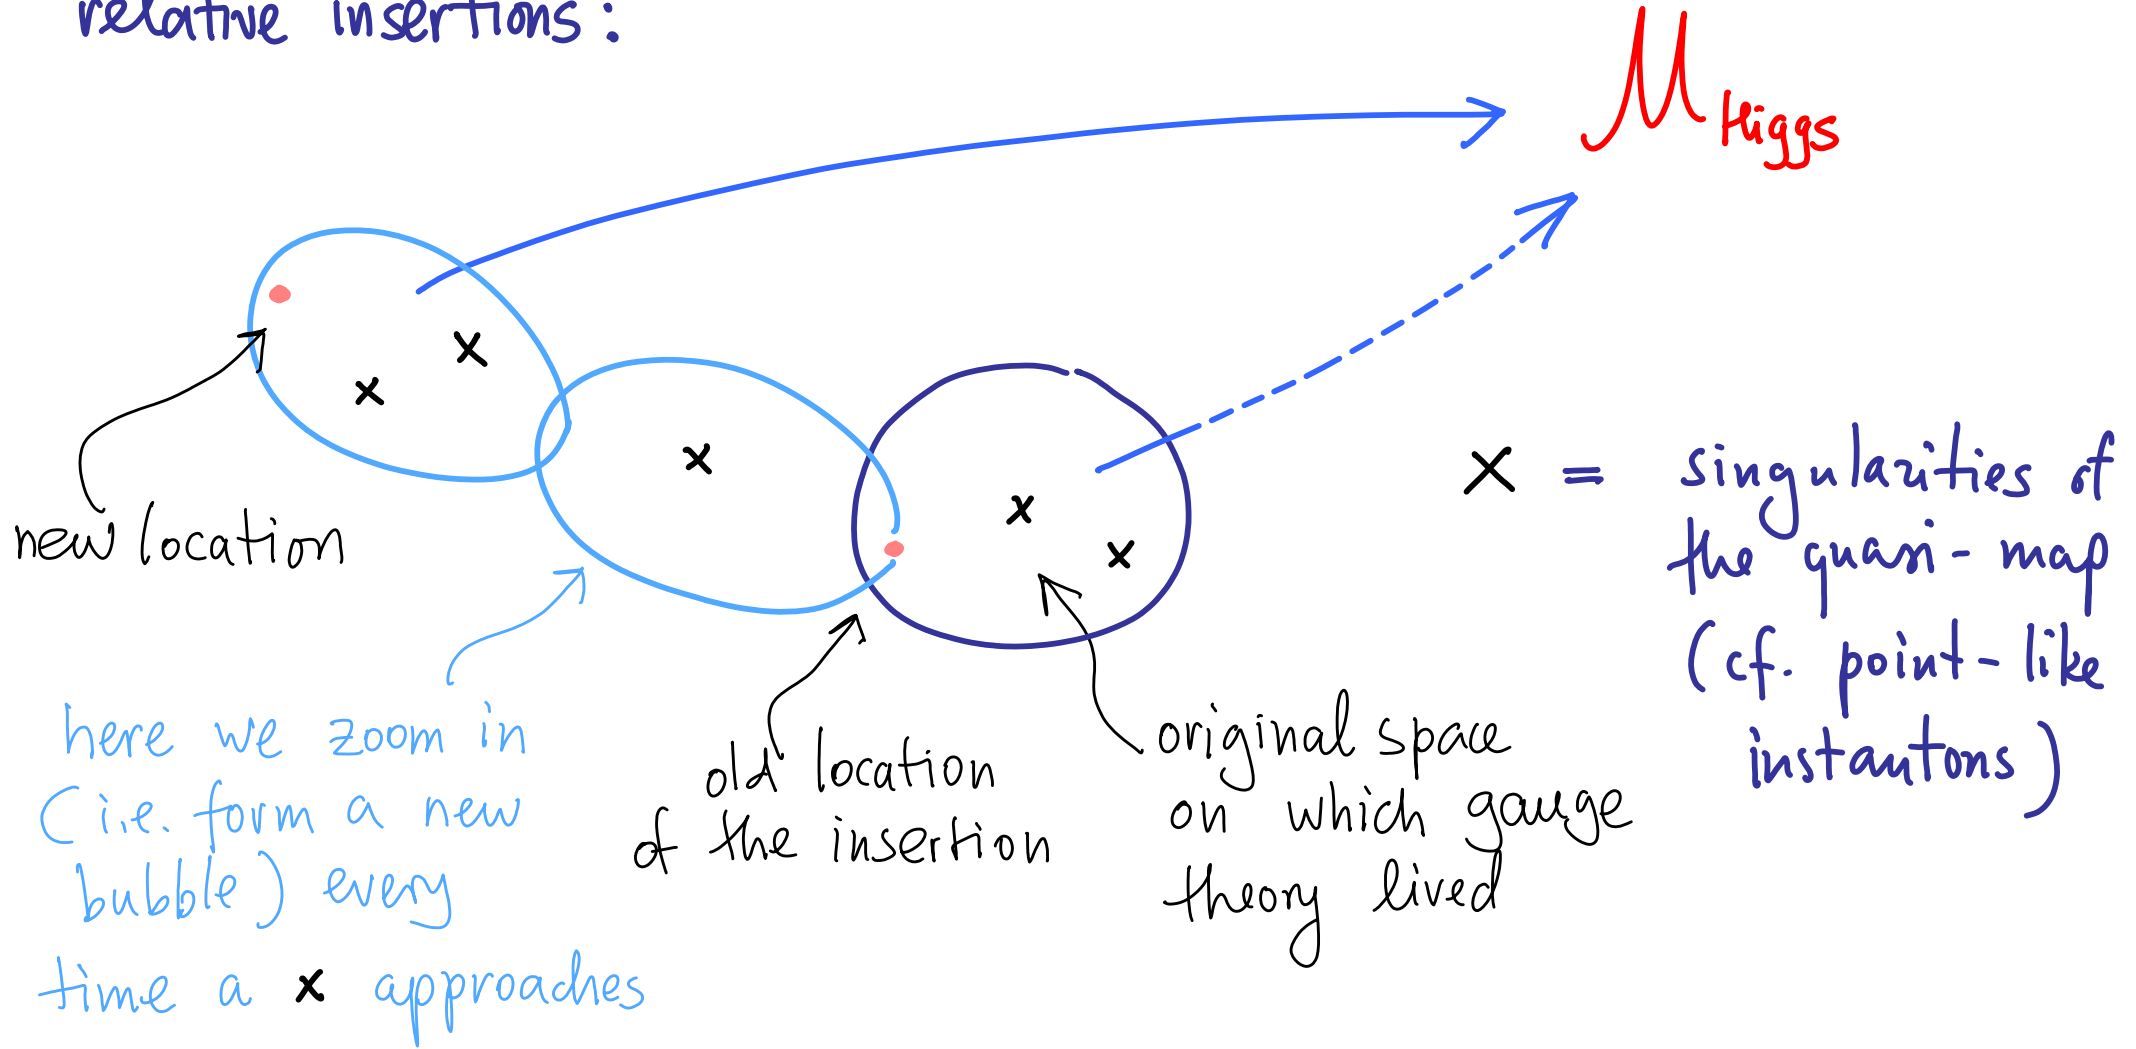 relative insertions:
M Higgs
new location
x = singularities of
the quasi-map
(cf. point-like
instantons)
here we zoom in
(i.e. form a new
bubble) every
time a x approaches
old location
of the insertion
original space
on which gauge
theory lived